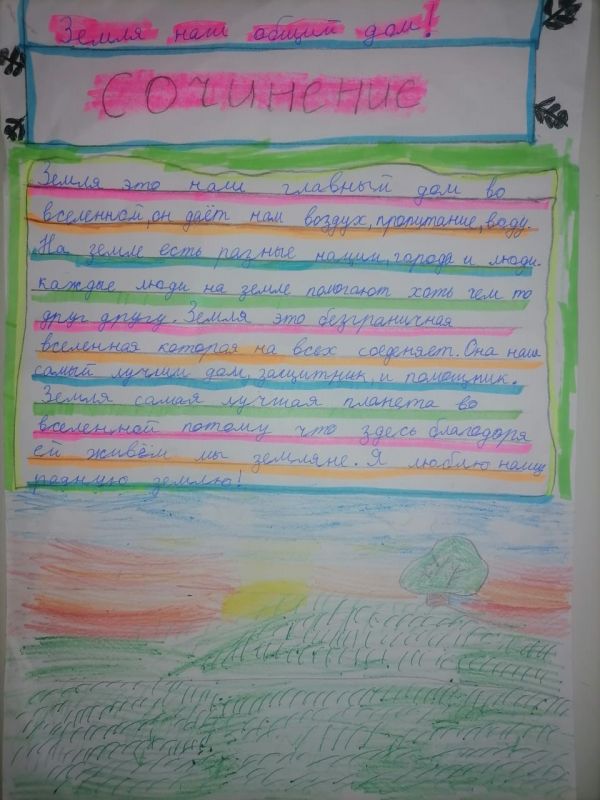 Земля наш общий дом!
Сочинение
Земля это наш главный дом во
вселенной, он даёт нам воздух, пропитание, воду.
На земле есть разные нации, города и люди
каждые люди на земле помогают хоть чем то
друг другу. Земля это безграничная
вселенная которая на всех соеденяет. Она наш
самый лучший дом, защитник, и помощник.
Земля самая лучшая планета во
вселенной потому что здесь благодоря
ей живём мы земляне. Я люблю нашу
родную землю!